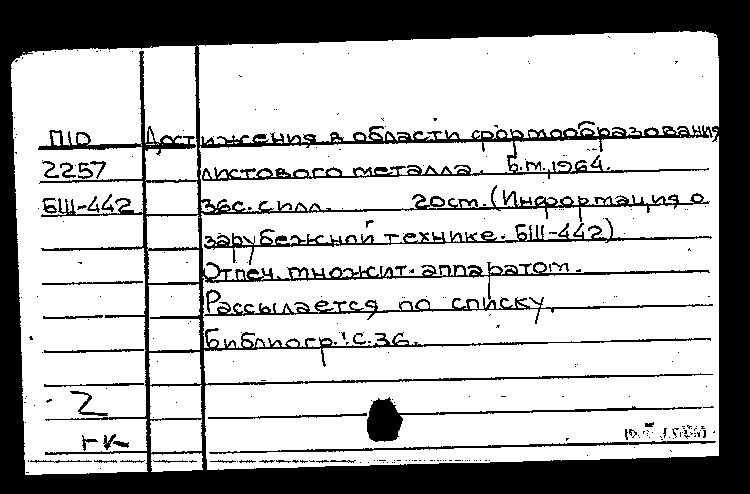 П10 Достижения в области формообразования
2257 листового металла. Б.м.,1964.
БШ-442 36с. силл. 20ст. (Информация о
зарубежной технике. БШ-442)
Отпеч. множит. аппаратом.
Рассылается по списку.
Библиогр.: С.36.
2
гк